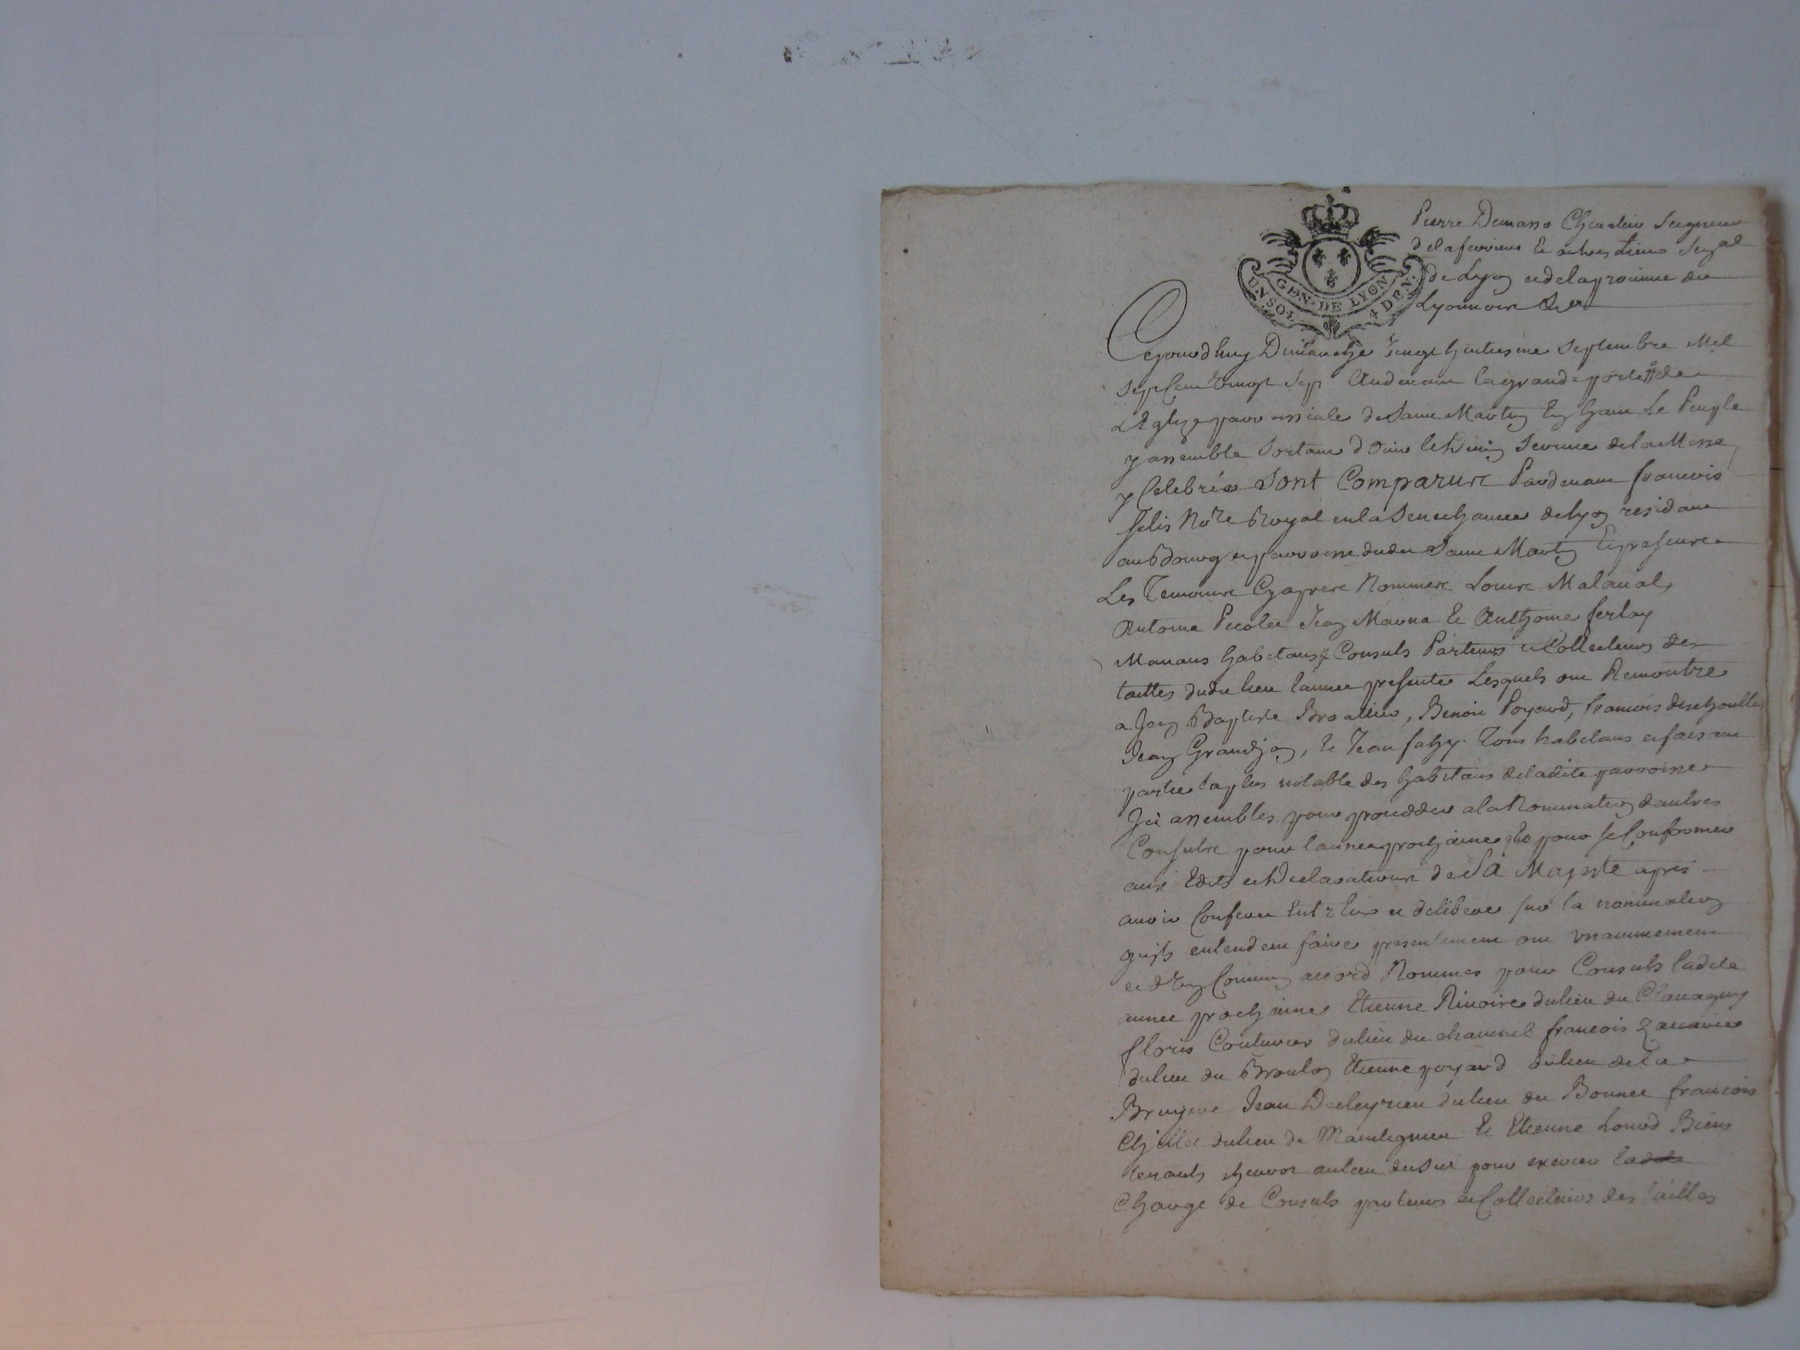 Pierre Demasso Chevalier Seigneur
de la ferriere et autres lieux Sen.al
de Lyon et de la province du
Lyonnois
GEN. DE LYON
UN SOL 4 DEN.
Cejourdhuy Dimanche vingt huitiesme Septembre Mil
Sept Cent vingt Sept Audevant la grande porte de
L'Eglize parroissiale de Saint Martin En haut Le Peuple
y assemblé Sortant d'Ouir le divin Service de la Messe
y Celebrée Sont Comparus Pardevant francois
No.re Royal en la Senechaucee de Lyon residant
au Bourg et parroisse dudit Saint Martin Et presents
Les Temoins Cyapres Nommes Louis Malaval
Antoine Jean Et Anthoine ferlay
Manans habitans Consuls Parteurs et Collecteurs des
tailles dudit lieu l'annee presente Lesquels ont Remontré
a Jean Baptiste Benoit Poyard, francois
Jean Grandjon, Et Jean fahy Tous habitans et faisant
partie la plus notable des habitans de ladite parroisse
Ici assembles pour proceder a la Nomination dautres
Consuls pour l'annee prochaine Et pour se Conformer
aux Edits et Declarations de Sa Majesté apres
avoir Conferé Entr'Eux et deliberé sur la nomination
quils entendent faire presentement ont unanimement
et d'Un Commun accord Nommes pour Consuls ladite
annee prochaine Etienne Rivoire du lieu du
floris Couturier du lieu du francois Zacarie
du lieu du Etienne poyard du lieu de la
Bruyere Jean du lieu du Bonnet francois
du lieu de Et Etienne
au lieu dusut pour exercer la
Charge de Consuls parteurs et Collecteurs des tailles